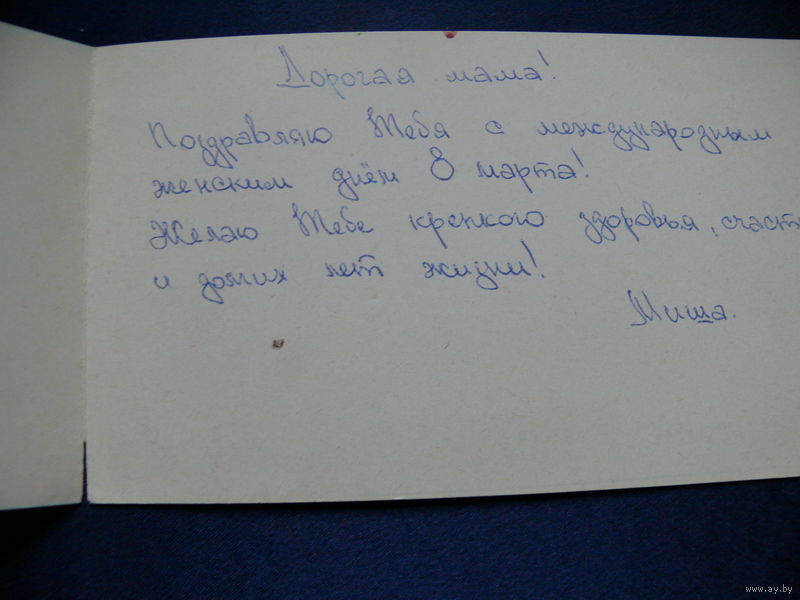 Дорогая мама!
Поздравляю Тебя с международным
женским днём 8 марта!
Желаю Тебе крепкого здоровья, счасть
и долгих лет жизни!
Миша.
www.ay.by